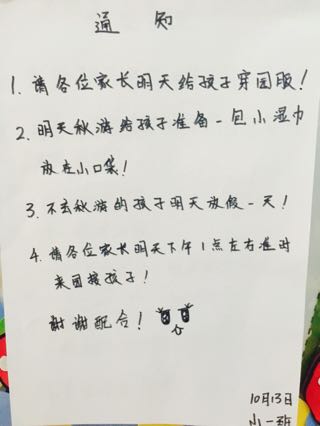 通 知
1. 请各位家长明天给孩子穿园服!
2. 明天秋游给孩子准备一包小湿巾
放在小口袋!
3. 不去秋游的孩子明天放假一天!
4. 请各位家长明天下午1点左右准时
来园接孩子!
谢谢配合!
10月13日
小一班